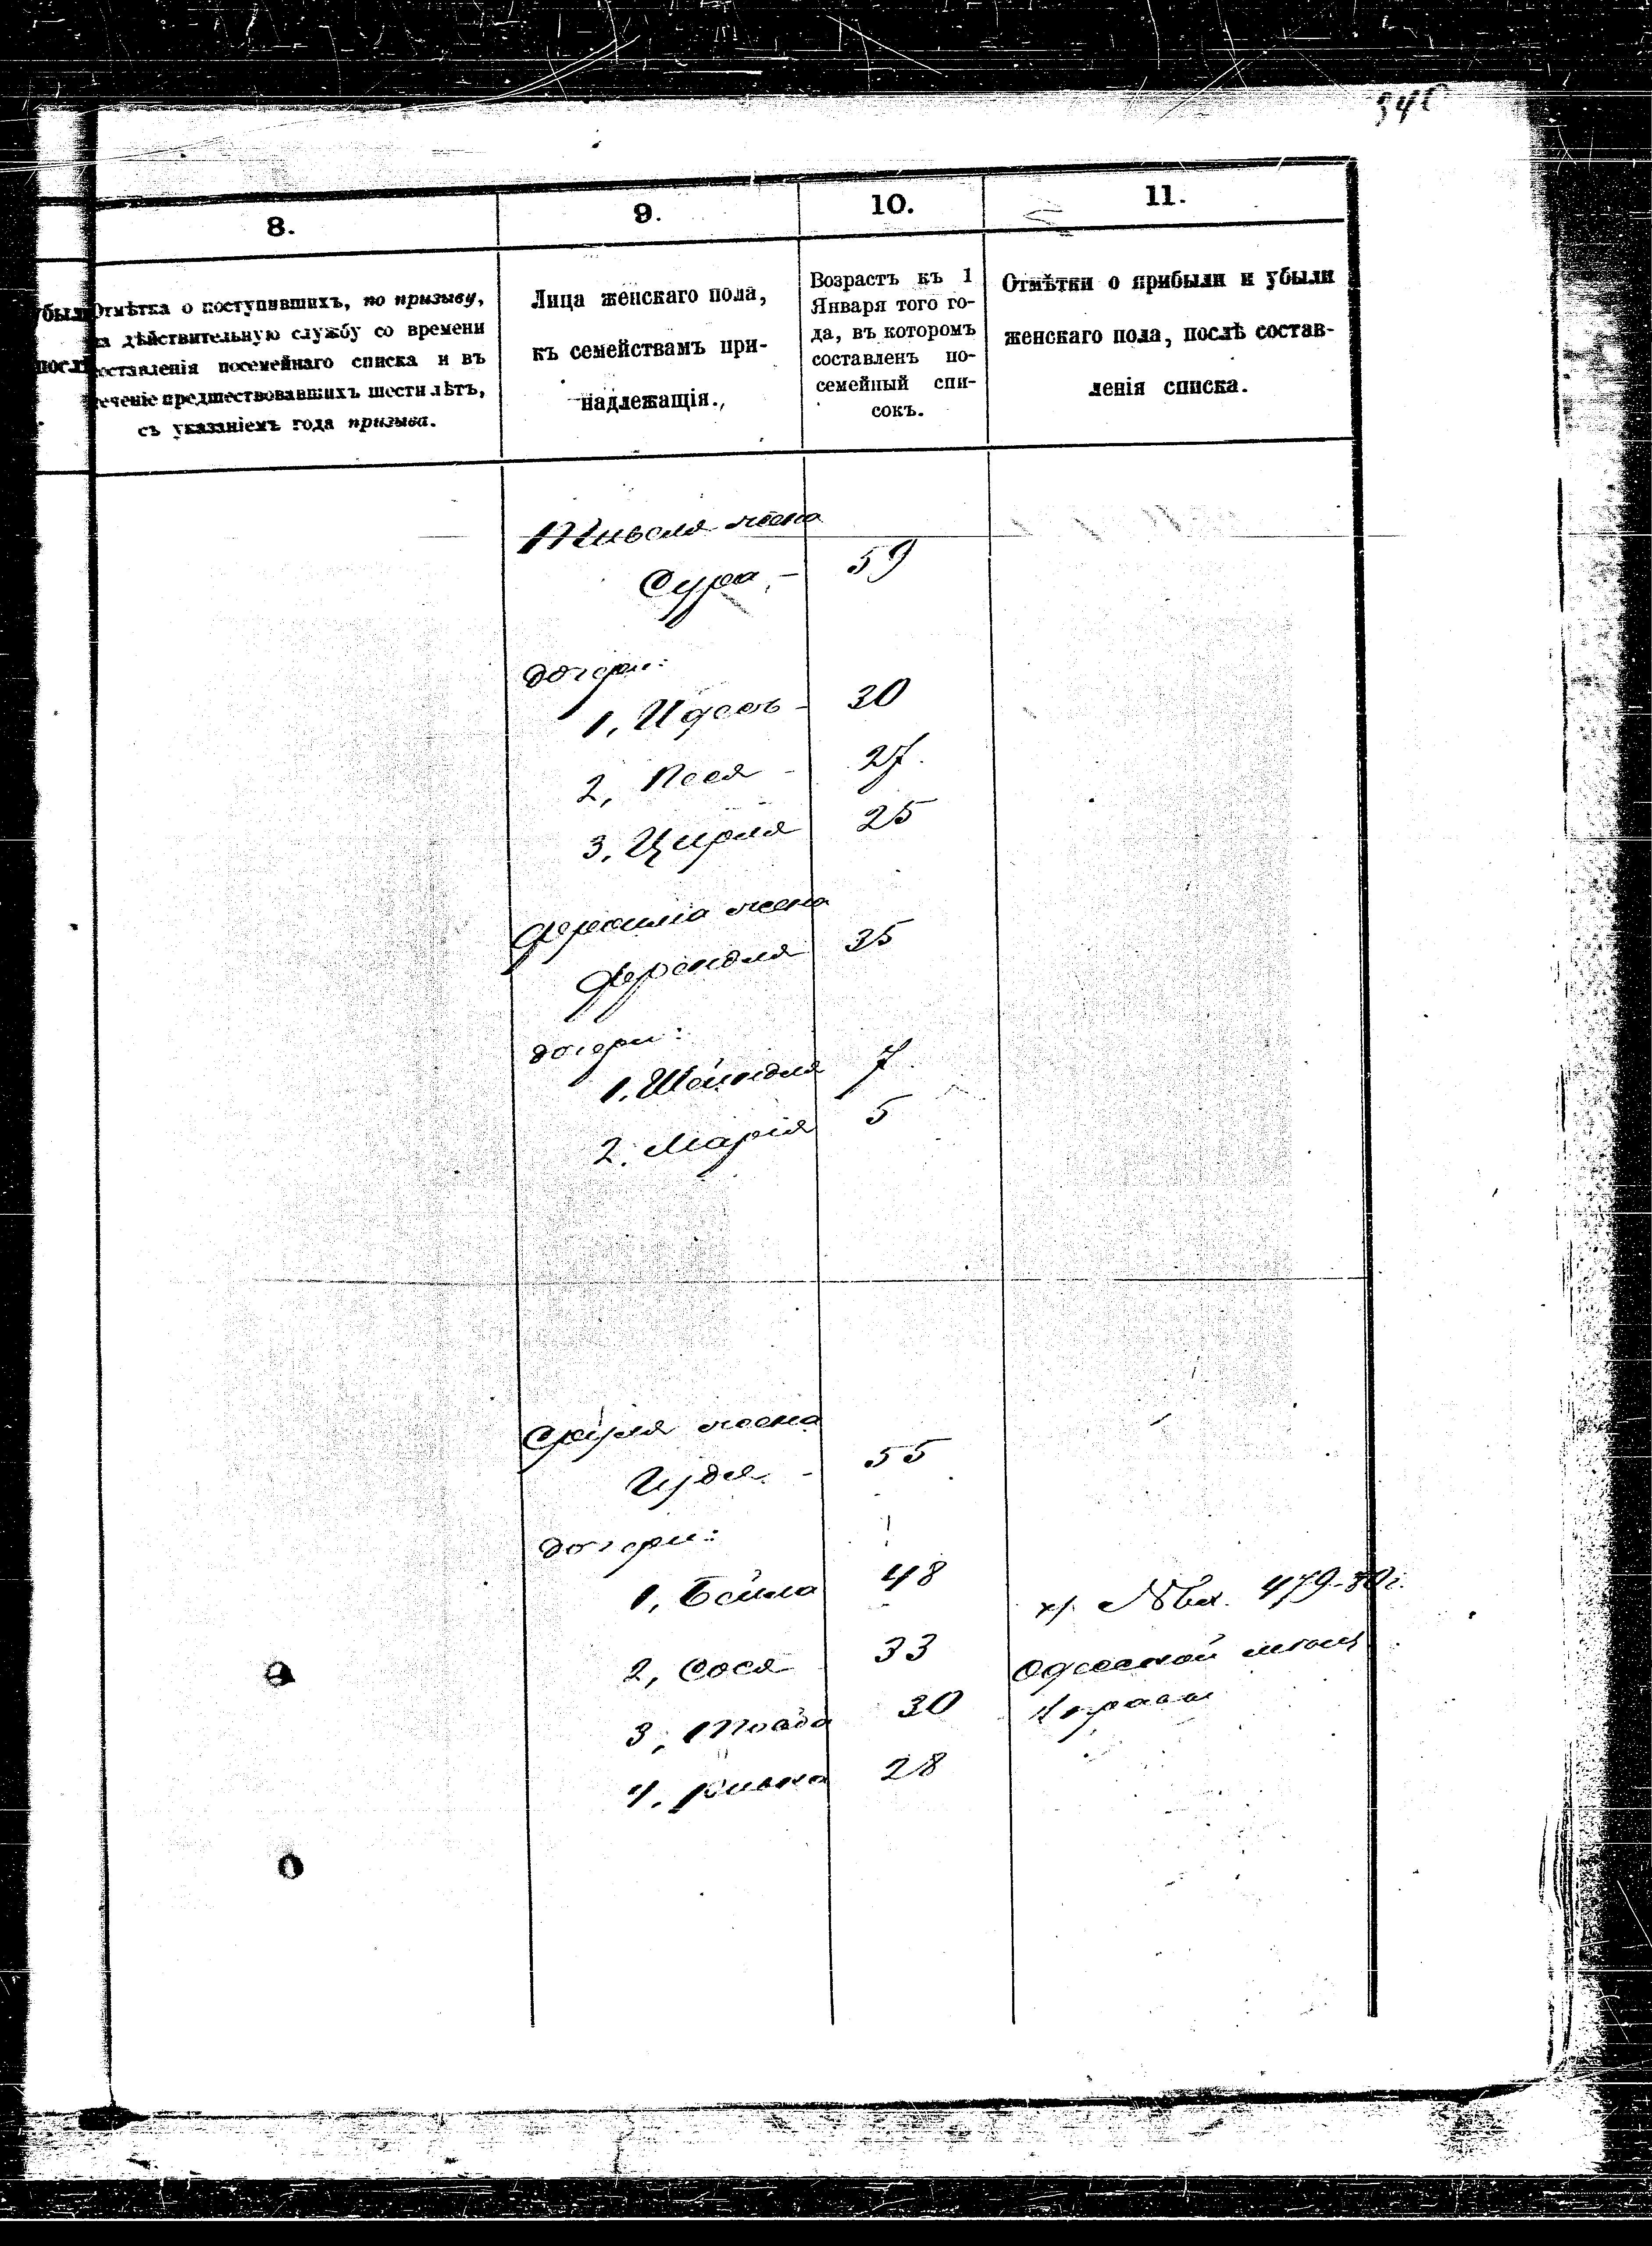 8.
9.
10.
11.
Отмѣтка о поступившихъ, по призыву,
на дѣйствительную службу со времени
составленія посемейнаго списка и въ
теченіе предшествовавшихъ шести лѣтъ,
съ указаніемъ года призыва.
Лица женскаго пола,
къ семействамъ при-
надлежащія.
Возрастъ къ 1
Января того го-
да, въ которомъ
составленъ по-
семейный спи-
сокъ.
Отмѣтки о прибыли и убыли
женскаго пола, послѣ состав-
ленія списка.
жена
Сура - 59
дочери:
1, Идесъ - 30
2, Песя - 27
3, Цирля 25
жена
Фрейдля 35
дочери:
1. Шейндля 7
2. Марія 5
Сруля жена
Идя - 55
дочери:
1, Бейла 48
2, Сося 33
3, 30
4, Ривка 28
479-80 г.
Одесской мѣщ
Управы